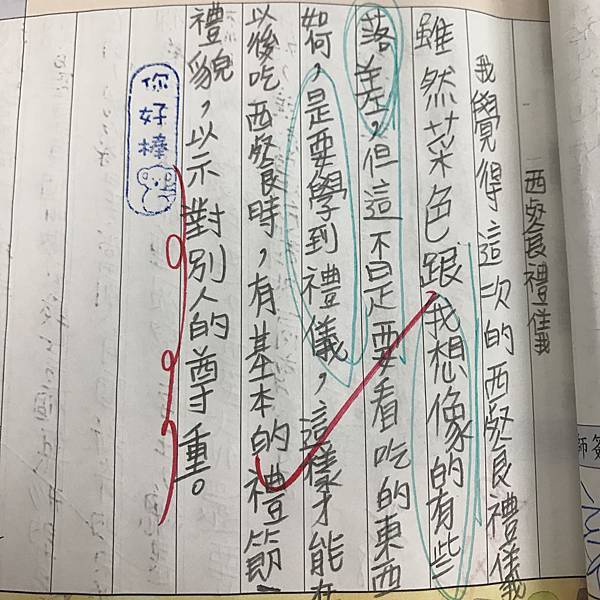 西餐禮儀
我覺得這次的西餐禮儀
雖然菜色跟我想像的有些
落差,但這不是要看吃的東西
如何,是要學到禮儀,這樣才能在
以後吃西餐時,有基本的禮節、
禮貌,以示對別人的尊重。
你好棒
師簽